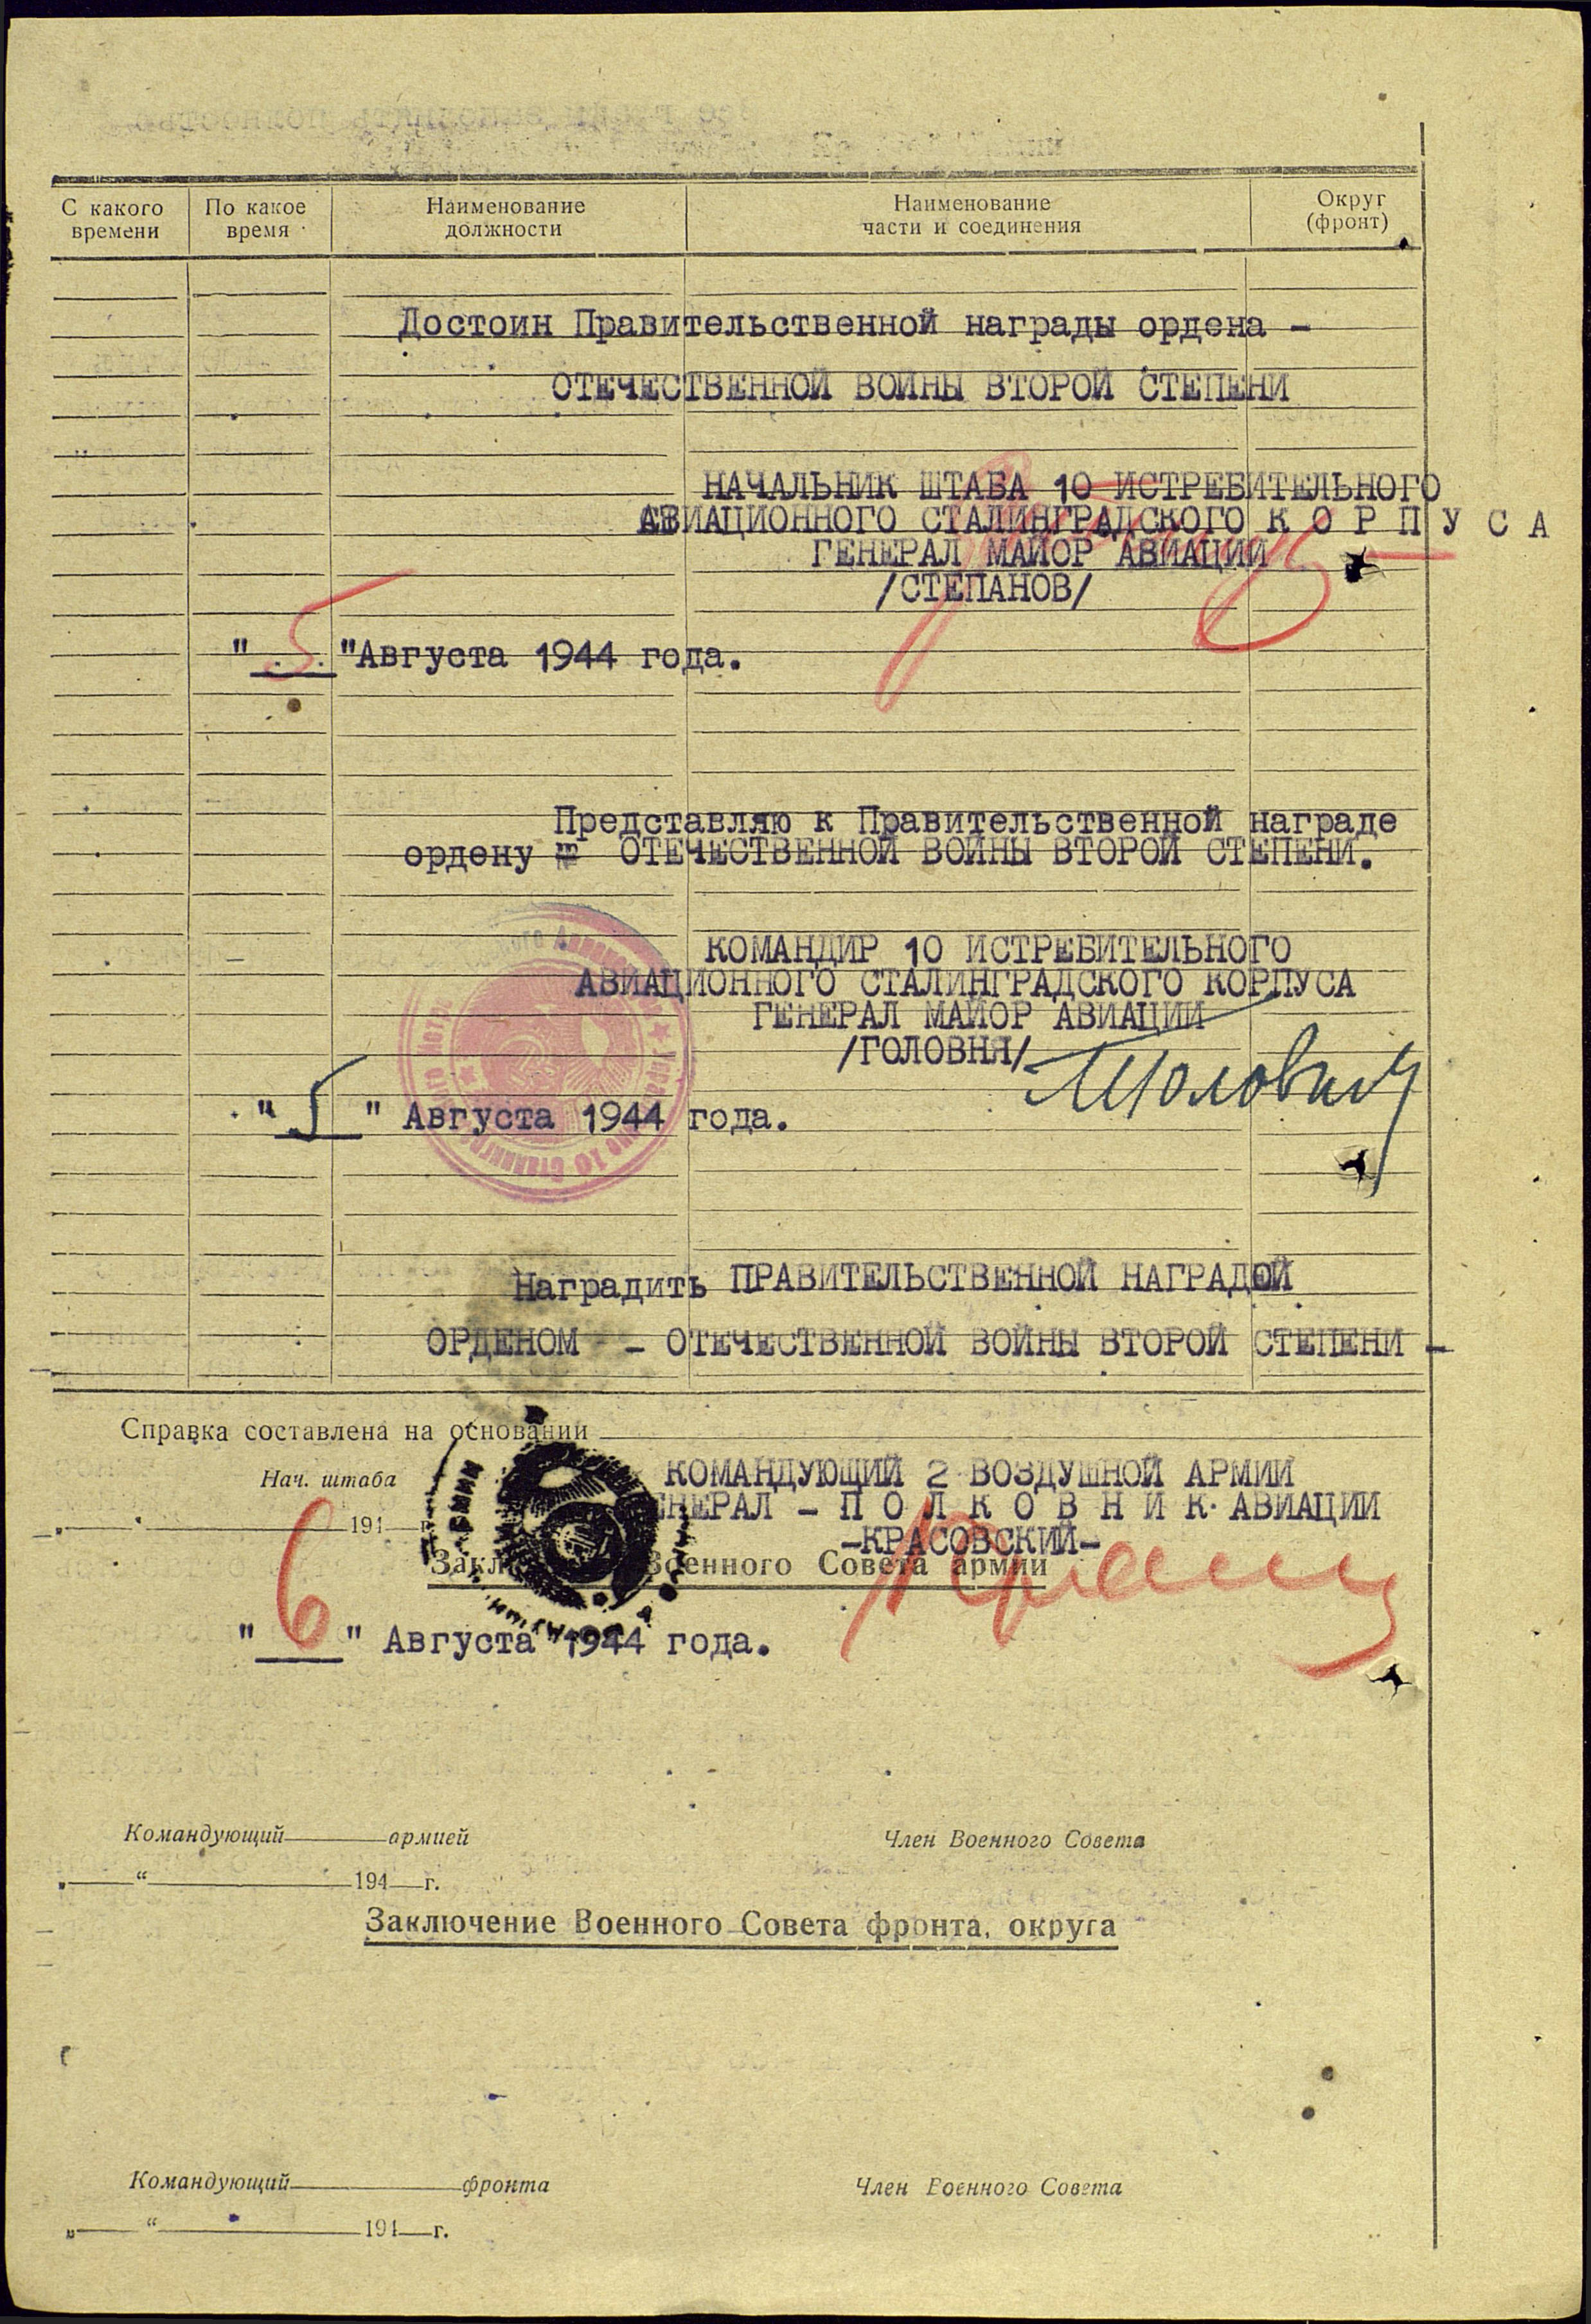 С какого времени
По какое время
Наименование должности
Наименование части и соединения
Округ (фронт)
Достоин Правительственной награды ордена -
ОТЕЧЕСТВЕННОЙ ВОЙНЫ ВТОРОЙ СТЕПЕНИ
НАЧАЛЬНИК ШТАБА 10 ИСТРЕБИТЕЛЬНОГО
АВИАЦИОННОГО СТАЛИНГРАДСКОГО К О Р П У С А
ГЕНЕРАЛ МАЙОР АВИАЦИИ
/СТЕПАНОВ/
" 5 "Августа 1944 года.
Представляю к Правительственной награде
ордену ОТЕЧЕСТВЕННОЙ ВОЙНЫ ВТОРОЙ СТЕПЕНИ.
КОМАНДИР 10 ИСТРЕБИТЕЛЬНОГО
АВИАЦИОННОГО СТАЛИНГРАДСКОГО КОРПУСА
ГЕНЕРАЛ МАЙОР АВИАЦИИ
/ГОЛОВНЯ/
" 5 " Августа 1944 года.
Наградить ПРАВИТЕЛЬСТВЕННОЙ НАГРАДОЙ
ОРДЕНОМ - ОТЕЧЕСТВЕННОЙ ВОЙНЫ ВТОРОЙ СТЕПЕНИ -
Справка составлена на основании
КОМАНДУЮЩИЙ 2 ВОЗДУШНОЙ АРМИИ
Нач. штаба
НЕРАЛ - П О Л К О В Н И К АВИАЦИИ
„ " 194 г.
-КРАСОВСКИЙ-
Закл Военного Совета армии
" 6 " Августа 1944 года.
Командующий армией
Член Военного Совета
„ “ 194 г.
Заключение Военного Совета фронта, округа
Командующий фронта
Член Военного Совета
„ “ 194 г.